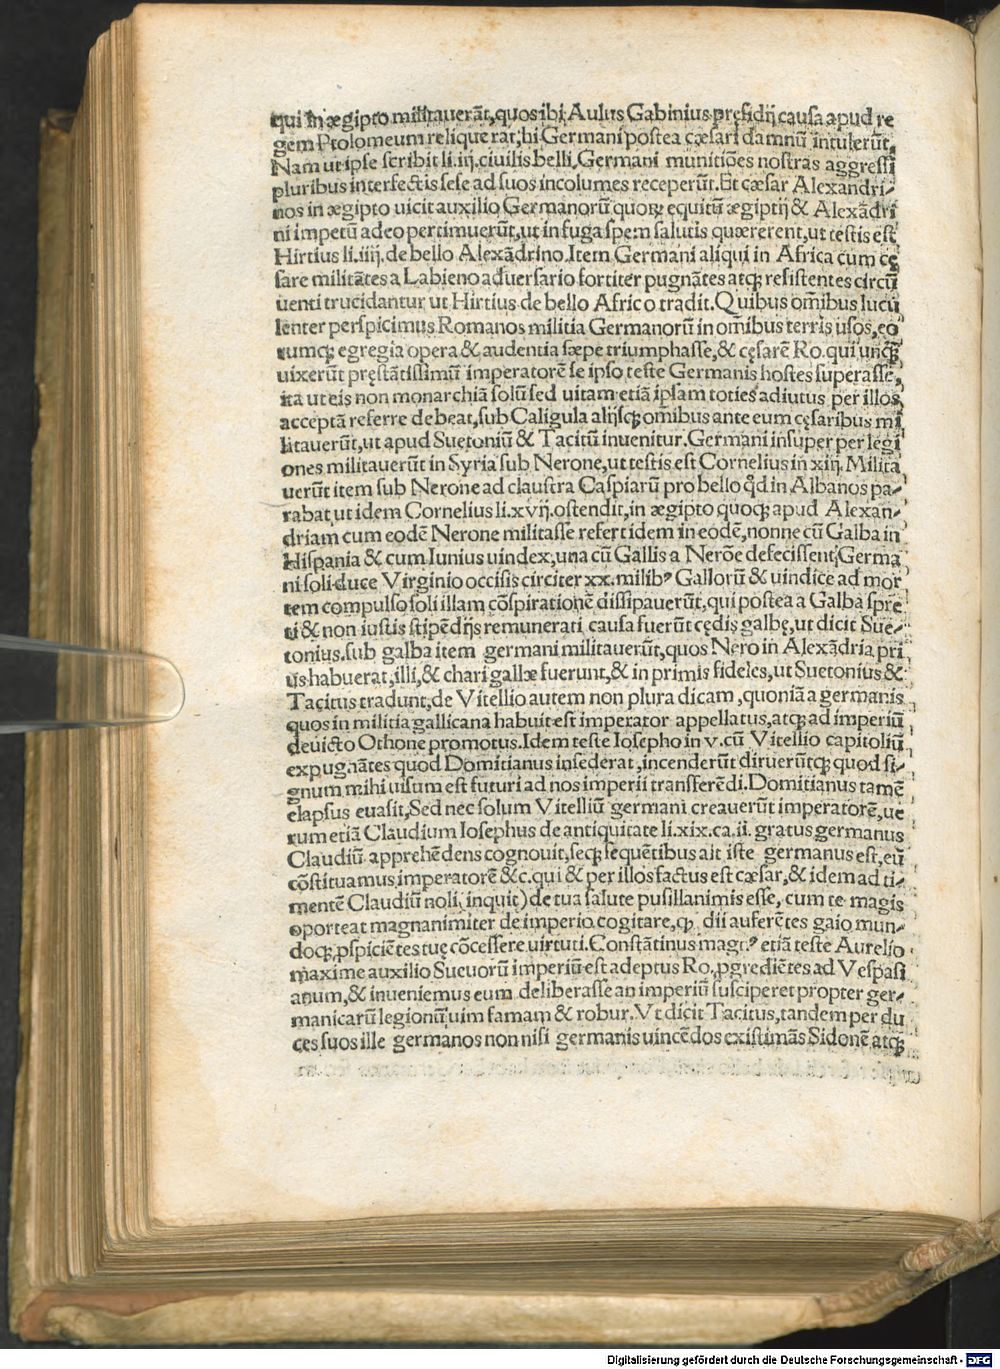 qui in ægipto militauerāt, quos ibi Aulus Gabinius pręsidij causa apud re
gem Ptolomeum relique rat, hi Germani postea cæsari damnū intulerūt,
Nam ut ipse scribit li.iij.ciuilis belli, Germani munitiōes nostras aggressi
pluribus interfectis sese ad suos incolumes receperūt. Et cæsar Alexandri-
nos in ægipto uicit auxilio Germanorū quorꝝ equitū ægiptij & Alexādri
ni impetū adeo pertimuerūt, ut in fuga spem salutis quærerent, ut testis est
Hirtius li.iiij.de bello Alexādrino. Item Germani aliqui in Africa cum cę
sare militātes a Labieno aduersario fortiter pugnātes atqꝫ resistentes circū
uenti trucidantur ut Hirtius de bello Africo tradit. Quibus om̄ibus lucu
lenter perspicimus Romanos militia Germanorū in om̄ibus terris usos, eo
rumqꝫ egregia opera & audentia sæpe triumphasse, & cęsarē Ro. qui unqꝫ̄
uixerūt pręstātissimū imperatorē se ipso teste Germanis hostes superasse,
ita ut eis non monarchiā solū sed uitam etiā ipsam toties adiutus per illos
acceptā referre debeat, sub Caligula alijsqꝫ om̄ibus ante eum cęsaribus mi
litauerūt, ut apud Suetoniū & Tacitū inuenitur. Germani insuper per legi
ones militauerūt in Syria sub Nerone, ut testis est Cornelius in xiij. Milita
uerūt item sub Nerone ad claustra Caspiarū pro bello qd̄ in Albanos pa-
rabat, ut idem Cornelius li.xvij.ostendit, in ægipto quoqꝫ apud Alexan-
driam cum eodē Nerone militasse refert idem in eodē, nonne cū Galba in
Hispania & cum Iunius uindex, una cū Gallis a Nerōe defecissent, Germa
ni soli duce Virginio occisis circiter xx. milibꝰ Gallorū & uindice ad mor
tem compulso soli illam cōspirationē dissipauerūt, qui postea a Galba spre
ti & non iustis stipēdijs remunerati causa fuerūt cędis galbę, ut dicit Sue-
tonius. sub galba item germani militauerūt, quos Nero in Alexādria pri
us habuerat, illi, & chari gallæ fuerunt, & in primis fideles, ut Suetonius &
Tacitus tradunt, de Vitellio autem non plura dicam, quoniā a germanis
quos in militia gallicana habuit est imperator appellatus, atqꝫ ad imperiū
deuicto Othone promotus. Idem teste Iosepho in v.cū Vitellio capitoliū
expugnātes quod Domitianus insederat, incenderūt diruerūtqꝫ quod si-
gnum mihi uisum est futuri ad nos imperii transferēdi. Domitianus tamē
elapsus euasit, Sed nec solum Vitelliū germani creauerūt imperatorē, ue
rum etiā Claudium Iosephus de antiquitate li.xix.ca.ii. gratus germanus
Claudiū apprehēdens cognouit, seqꝫ sequētibus ait iste germanus est, eū
cōstituamus imperatorē &c. qui & per illos factus est cæsar, & idem ad ti-
mentē Claudiū noli, inquit) de tua salute pusillanimis esse, cum te magis
oporteat magnanimiter de imperio cogitare, qꝫ dii auferētes gaio mun-
doqꝫ, ꝓspiciētes tuę cōcessere uirtuti. Constātinus magꝰ etiā teste Aurelio
maxime auxilio Sueuorū imperiū est adeptus Ro., ꝓgrediētes ad Vespasi
anum, & inueniemus eum deliberasse an imperiū susciperet propter ger-
manicarū legionū uim famam & robur. Vt dicit Tacitus, tandem per du
ces suos ille germanos non nisi germanis uincēdos existimās Sidonē atqꝫ
Digitalisierung gefördert durch die Deutsche Forschungsgemeinschaft - DFG